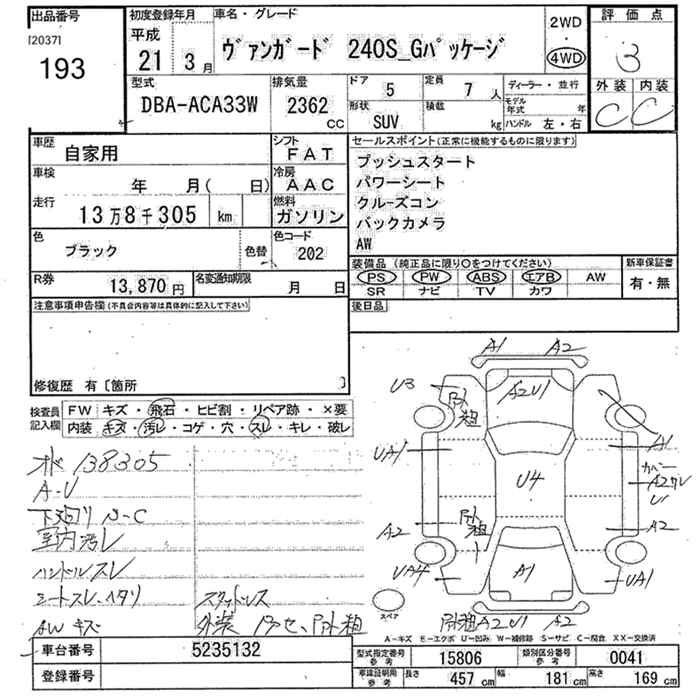 出品番号
[2037]
193
初度登録年月
平成
21 年 3 月
車名・グレード
ヴァンガード 240S_Gパッケージ
2WD
・
4WD
評価点
3
外装 内装
C C
型式
DBA-ACA33W
排気量
2362
CC
ドア 5
形状 SUV
定員 7 人
積載 kg
ディーラー・並行
モデル年式 年
ハンドル 左・右
車歴
自家用
シフト
FAT
車検
年 月( 日)
冷房
AAC
走行
13万8千305 km
燃料
ガソリン
色
ブラック
色替
色コード
202
R券
13,870円
名変通知期限
月 日
セールスポイント(正常に機能するものに限ります)
プッシュスタート
パワーシート
クルーズコン
バックカメラ
AW
装備品 (純正品に限り○をつけてください)
PS PW ABS エアB AW
SR ナビ TV カワ
新車保証書
有・無
後日品
注意事項申告欄(不具合内容等は具体的に記入して下さい)
修復歴 有〔箇所 〕
検査員
記入欄
FW キズ・飛石・ヒビ割・リペア跡・×要
内装 キズ・汚レ・コゲ・穴・スレ・キレ・破レ
138305
A-U
下廻りS-C
室内汚レ
ハンドルスレ
シートスレ、ヘタリ
AWキズ
スタッドレス
外装
A1 A2
U3
A2U1
UA1
A1
U4
カバー
A2サレ
U1
A2
A2
UA4
A1
UA1
A2U1 A2
スペア
A-キズ E-エクボ U-凹み W-補修跡 S-サビ C-腐食 XX-交換済
車台番号
5235132
登録番号
型式指定番号
参考
15806
類別区分番号
参考
0041
車庫証明用
参考
長さ 457 cm
幅 181 cm
高さ 169 cm